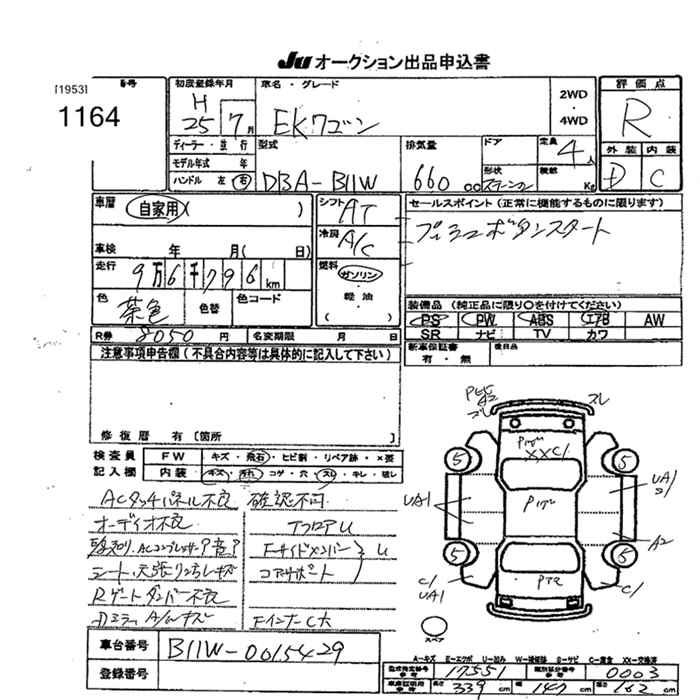 JU オークション出品申込書
[1953] 番号
1164
初度登録年月
H 25 7月
車名・グレード
EKワゴン
2WD
4WD
評価点
R
外装 内装
D C
ディーラー・並行
モデル年式 年
ハンドル 左 右
型式
DBA-B11W
排気量
660 cc
ドア
形状
定員
4人
積載
Kg
車歴
自家用( )
シフト
AT
冷房
A/C
セールスポイント(正常に機能するものに限ります)
プッシュボタンスタート
車検 年 月( 日)
走行
9万6千796km
燃料
ガソリン
・
軽油
( )
色
茶色
色替
色コード
装備品(純正品に限り○を付けてください)
PS PW ABS エアB AW
SR ナビ TV カワ
R券 8050円 名変期限 月 日
新車保証書
有・無
後日品
注意事項申告欄(不具合内容等は具体的に記入して下さい)
修復歴 有(箇所 )
検査員
記入欄
FW キズ・飛石・ヒビ割・リペア跡・×要
内装 キズ・汚れ・コゲ・穴・スレ・キレ・破レ
ACタッチパネル不良 確認不可
オーディオ不良
TフロアU
Fサイドメンバー
コアサポート
U
Rゲートダンパー不良
Fインナー C大
車台番号 B11W-0015429
登録番号
スレ
XXC/
5 5
UA1
UA1
A2
5 5
C/
UA1
C/
スペア
A-キズ E-エクボ U-凹み W-補修跡 S-サビ C-腐食 XX-交換済
型式指定番号 17551 類別区分番号 0003
長 339cm 幅 147cm 高 162cm